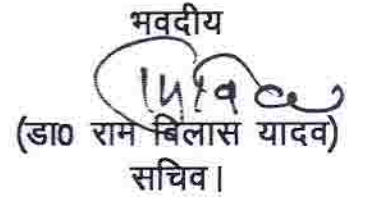 भवदीय
(डा0 राम बिलास यादव)
सचिव।